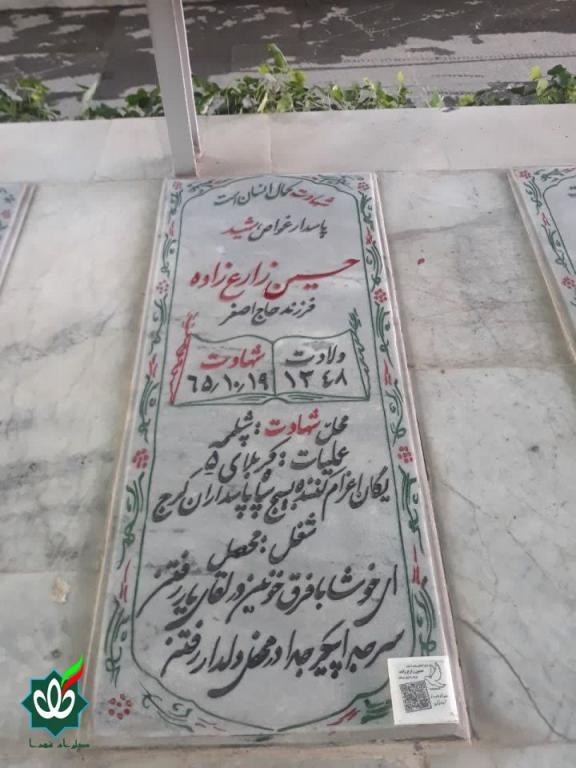 شهادت کمال انسان است
پاسدار غواص شهید
حسین زارع زاده
فرزند حاج اصغر
ولادت
۱۳۴۸
شهادت
۶۵٫۱۰٫۱۹
محل شهادت : شلمچه
عملیات : کربلای ۵
یگان اعزام کننده بسیج سپاه پاسداران کرج
شغل : محصل
ای خوشا با فرق خونین در لقای یار رفتن
سر جدا پیکر جدا در محفل دلدار رفتن